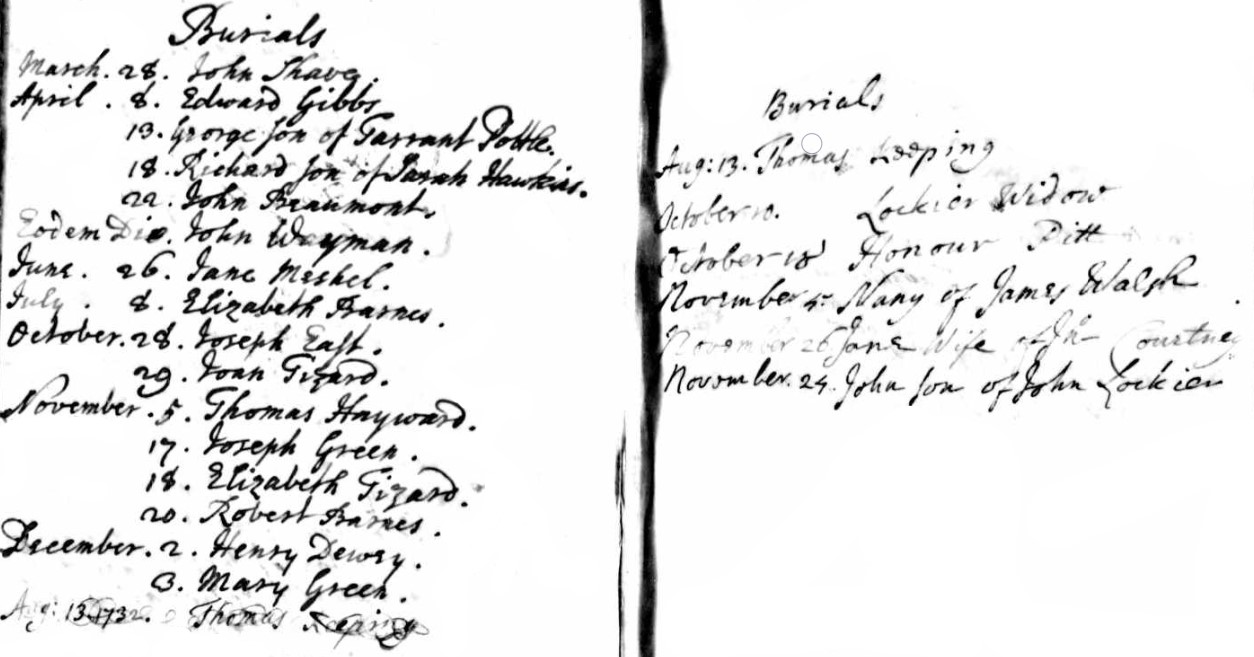 Burials
March. 28. John Shave.
April. 8. Edward Gibbs
13. George son of Tarrant Pottle.
18. Richard son of Sarah Hawkins.
22. John Beaumont.
Eodem Die. John Wayman.
June. 26. Jane Meshel.
July. 8. Elizabeth Barnes.
October. 28. Joseph East.
29. Joan Tizard.
November. 5. Thomas Hayward.
17. Joseph Green.
18. Elizabeth Tizard.
20. Robert Barnes.
December. 2. Henry Dewey.
3. Mary Green.
Aug: 13 1732. Thomas Keeping
Burials
Aug: 13. Thomas Keeping
October 10. Lockier Widow
October 18 Honour Pitt
November 4 Nany of James Walsh
November 26 Jane Wife of Jno Courtney
November. 24. John son of John Lockier